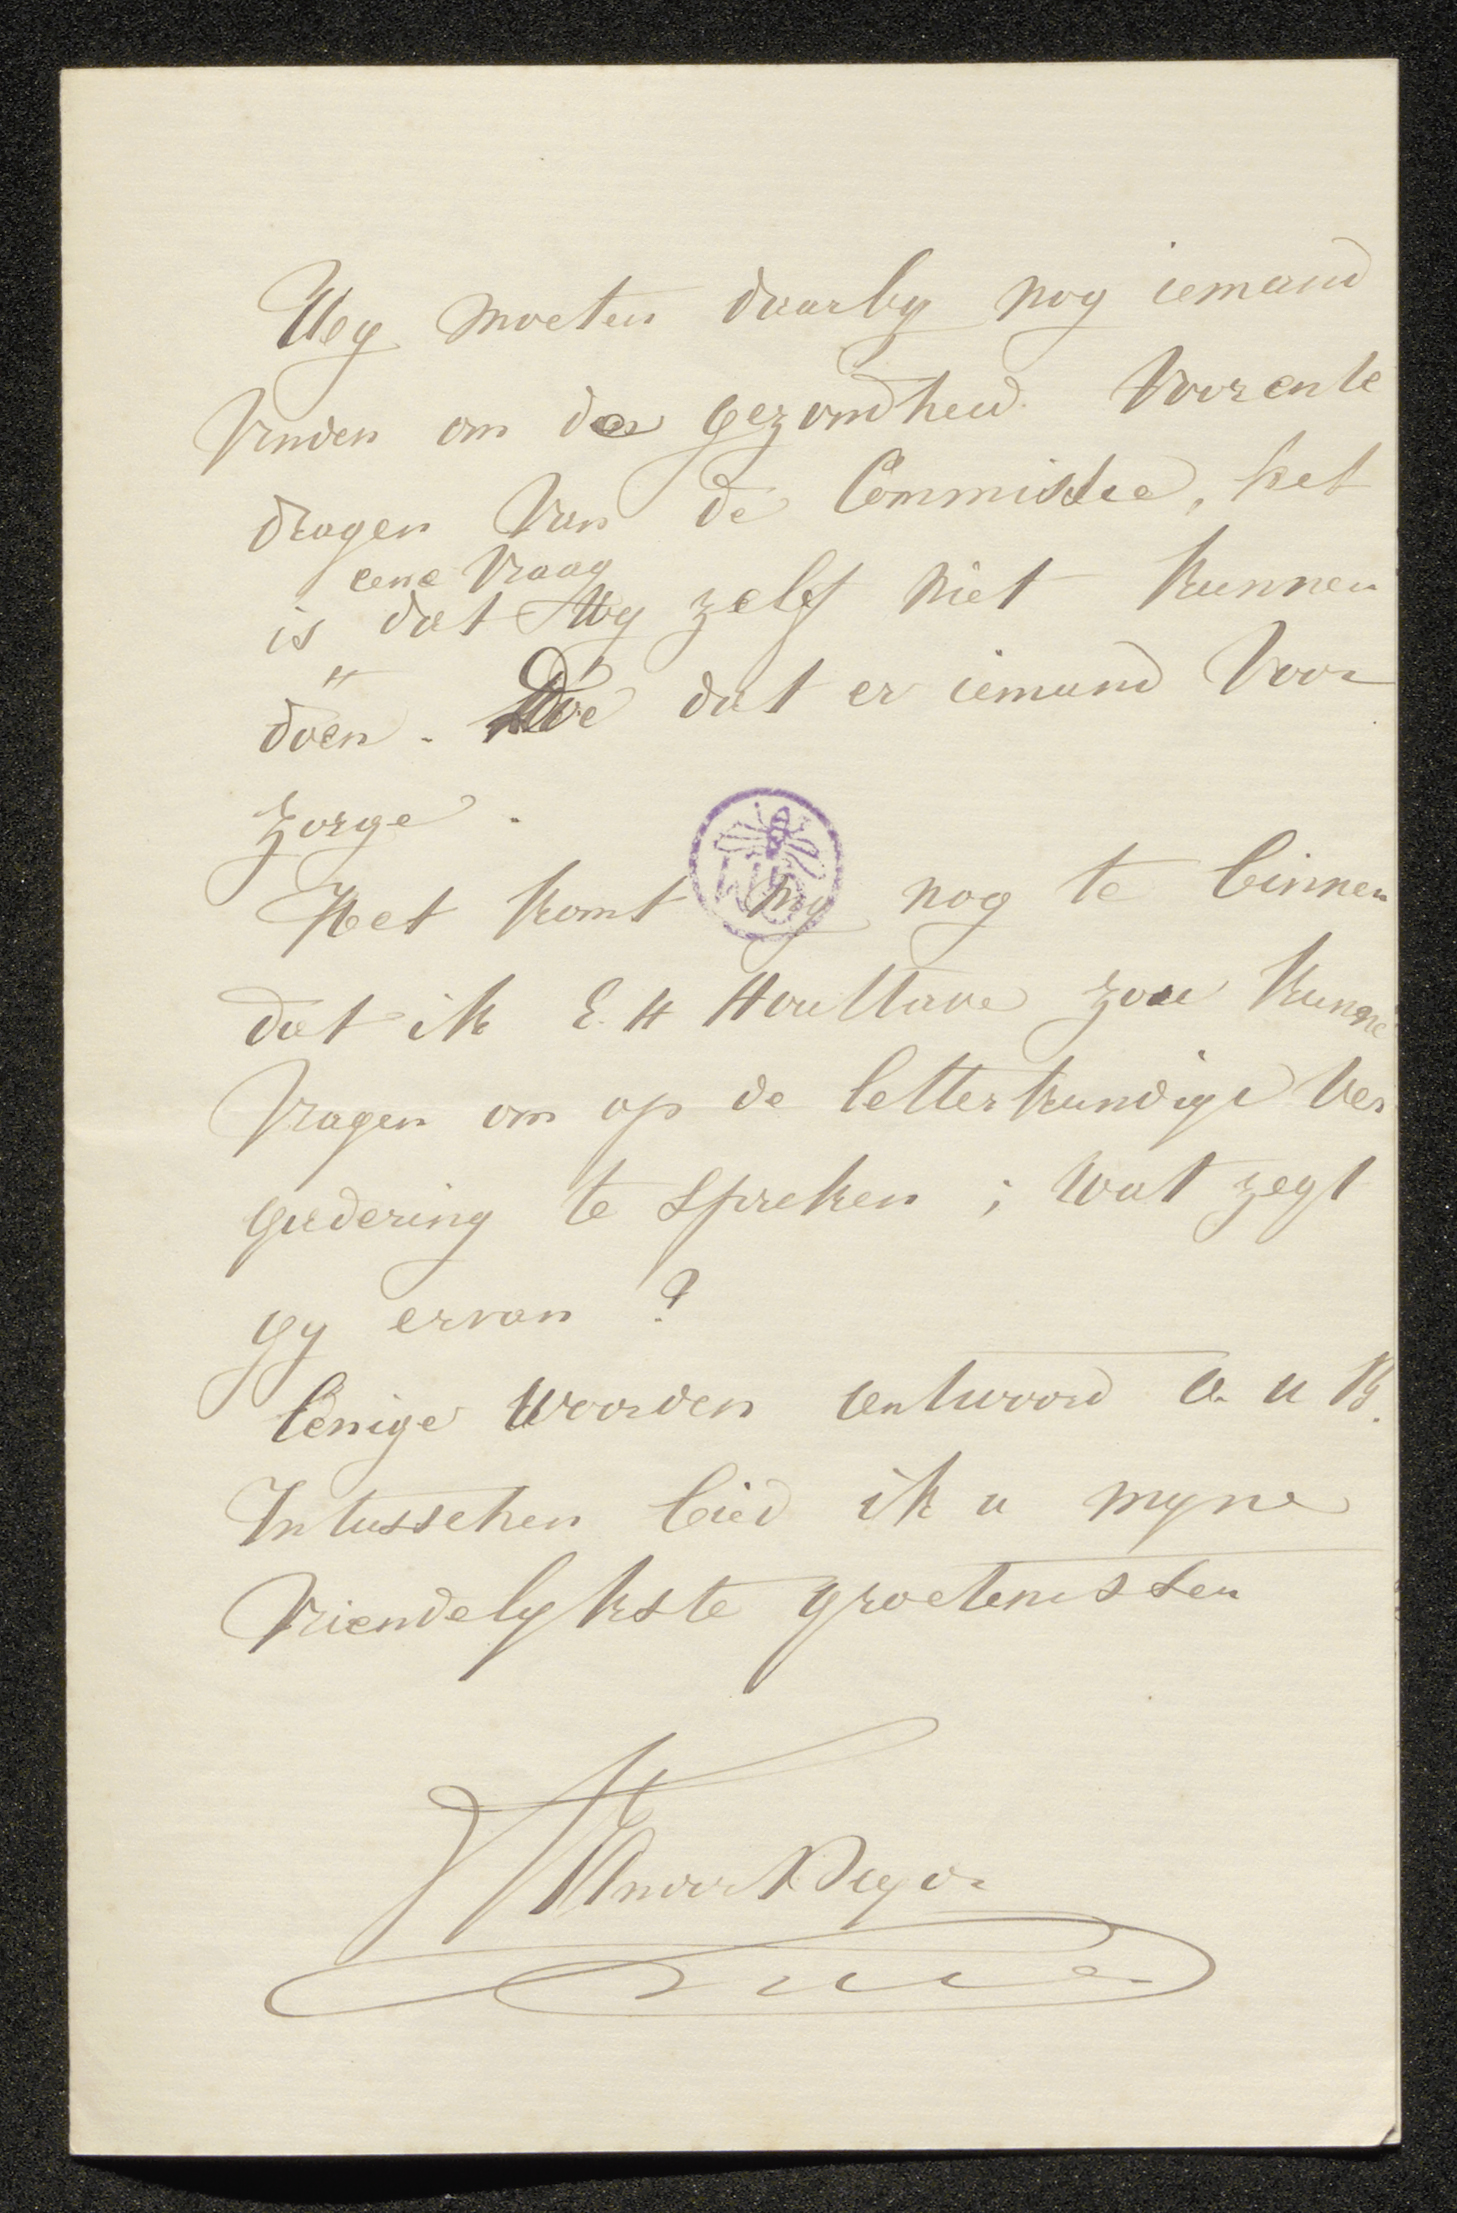 Wy moeten daarby nog iemand
vinden om de gezondheid voorente
dragen van de Commissie, het
eene vraag
is dat wy zelf niet kunnen
doen. Doe dat er iemand voor
zorge.
Het komt my nog te binnen
dat ik E. H Houttave zou kunne
vragen om op de letterkundige ver
gadering te spreken ; wat zegt
gy ervan ?
Eenige woorden antwoord A. u B.
Intusschen bied ik u myne
vriendelykste groetenissen